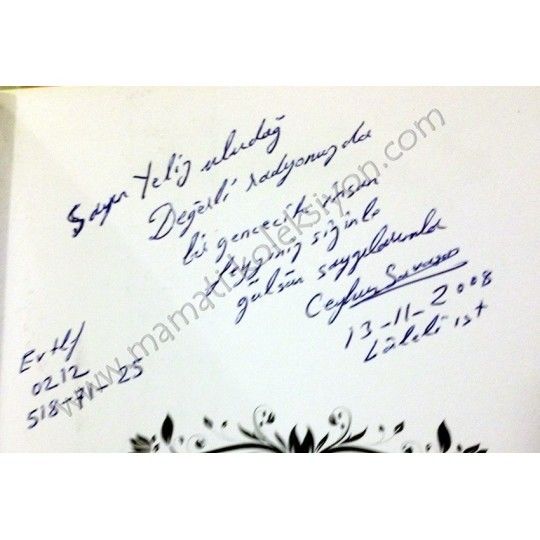 Sayın Yeliz uludağ
Değerli radyonuzda
bir gencecik insan
sizinle
gülsün saygılarımla
Ceyhun
13-11-2008
Laleli ist
0212
518-71-25
www.mamatikoleksiyon.com